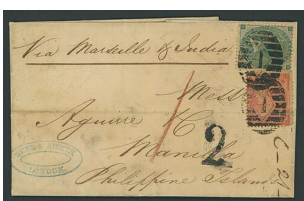 Via Marseille & India
Mess
Aguirre & C
Manilla
Philippine Islands
2
LONDON